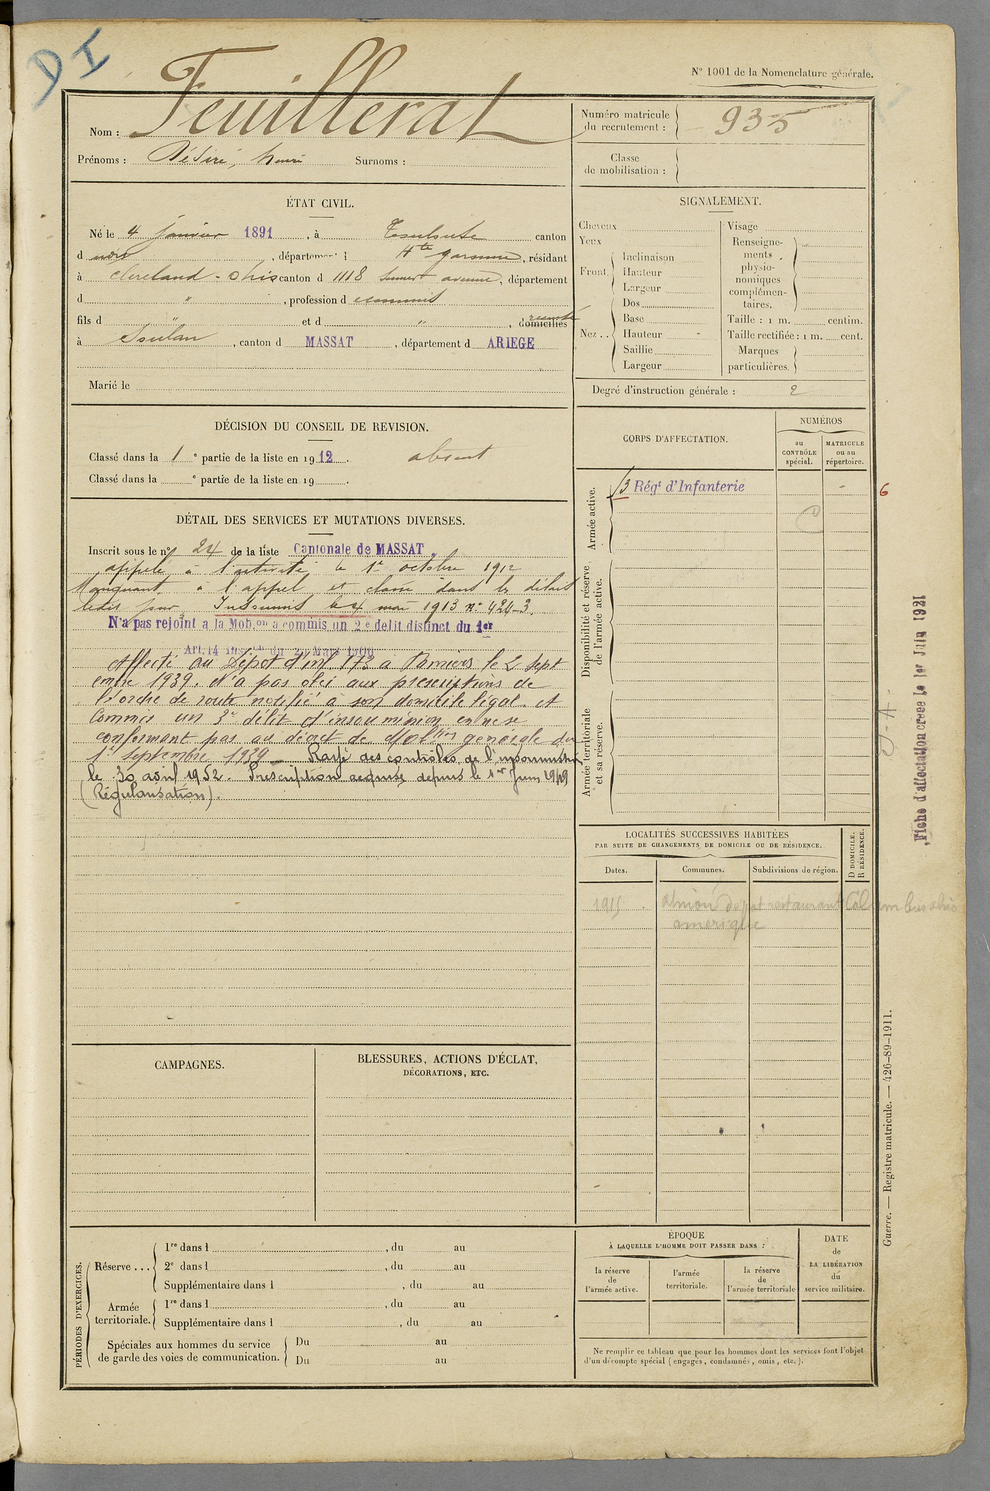 DI
N° 1001 de la Nomenclature générale.
Nom : Feuillerat
Prénoms : Désiré, henri Surnoms :
Numéro matricule du recrutement : 935
Classe de mobilisation :
ÉTAT CIVIL.
Né le 4 janvier 1891, à Toulouse canton
d , département Hte garonne, résidant
à Cleveland - Ohio canton d 1118 avenue, département
d " , profession d commis
fils d " et d " , domiciliés
à Soulan , canton d MASSAT , département d ARIEGE
Marié le
SIGNALEMENT.
Cheveux
Yeux
Front Inclinaison
Hauteur
Largeur
Nez .. Dos
Base
Hauteur
Saillie
Largeur
Visage
Renseignements physionomiques complémentaires.
Taille : 1 m. centim.
Taille rectifiée : 1 m. cent.
Marques particulières.
Degré d'instruction générale : 2
DÉCISION DU CONSEIL DE REVISION.
Classé dans la 1e partie de la liste en 1912. absent
Classé dans la e partie de la liste en 19 .
DÉTAIL DES SERVICES ET MUTATIONS DIVERSES.
Inscrit sous le n° 24 de la liste Cantonale de MASSAT
appelé à l'activité le 1er octobre 1912
Manquant à l'appel et classé dans les délais
Insoumis le 4 mai 1913 n° 424-3.
N'a pas rejoint a la Mobon a commis un 2e delit distinct du 1er
Affecté au Dépôt d'inf 173 à Pamiers le 2 Sept
embre 1939. N'a pas obéi aux prescriptions de
l'ordre de route notifié à son domicile légal. et
Commis un 3e délit d'insoumission en ne se
conformant pas au décret de Mobtion générale du
1er septembre 1939 _ Rayé des contrôles de l'insoumission
le 30 avril 1952. Prescription acquise depuis le 1er Juin 1949
(Régularisation).
CORPS D'AFFECTATION.
NUMÉROS
au CONTRÔLE spécial.
MATRICULE ou au répertoire.
Armée active.
Régt d'Infanterie
6
Disponibilité et réserve de l'armée active.
Armée territoriale et sa réserve.
J-A-
Fiche d'affectation creee Le 1er Juin 1921
LOCALITÉS SUCCESSIVES HABITÉES
PAR SUITE DE CHANGEMENTS DE DOMICILE OU DE RÉSIDENCE.
Dates. Communes. Subdivisions de région.
D DOMICILE. R RÉSIDENCE.
1915 union depot restaurant Columbus ohio
amerique
CAMPAGNES.
BLESSURES, ACTIONS D'ÉCLAT,
DÉCORATIONS, ETC.
Guerre. — Registre matricule. — 426-89-1911.
PÉRIODES D'EXERCICES.
Réserve ... 1re dans l , du au
2e dans l , du au
Supplémentaire dans l , du au
Armée territoriale. 1re dans l , du au
Supplémentaire dans l , du au
Spéciales aux hommes du service de garde des voies de communication. Du au
Du au
ÉPOQUE
À LAQUELLE L'HOMME DOIT PASSER DANS :
la réserve de l'armée active.
l'armée territoriale.
la réserve de l'armée territoriale
DATE de LA LIBÉRATION du service militaire.
Ne remplir ce tableau que pour les hommes dont les services font l'objet
d'un décompte spécial (engagés, condamnés, omis, etc.).